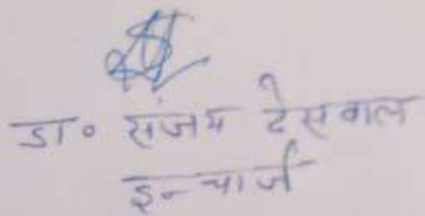 डा० संजय देसवाल
इन्चार्ज